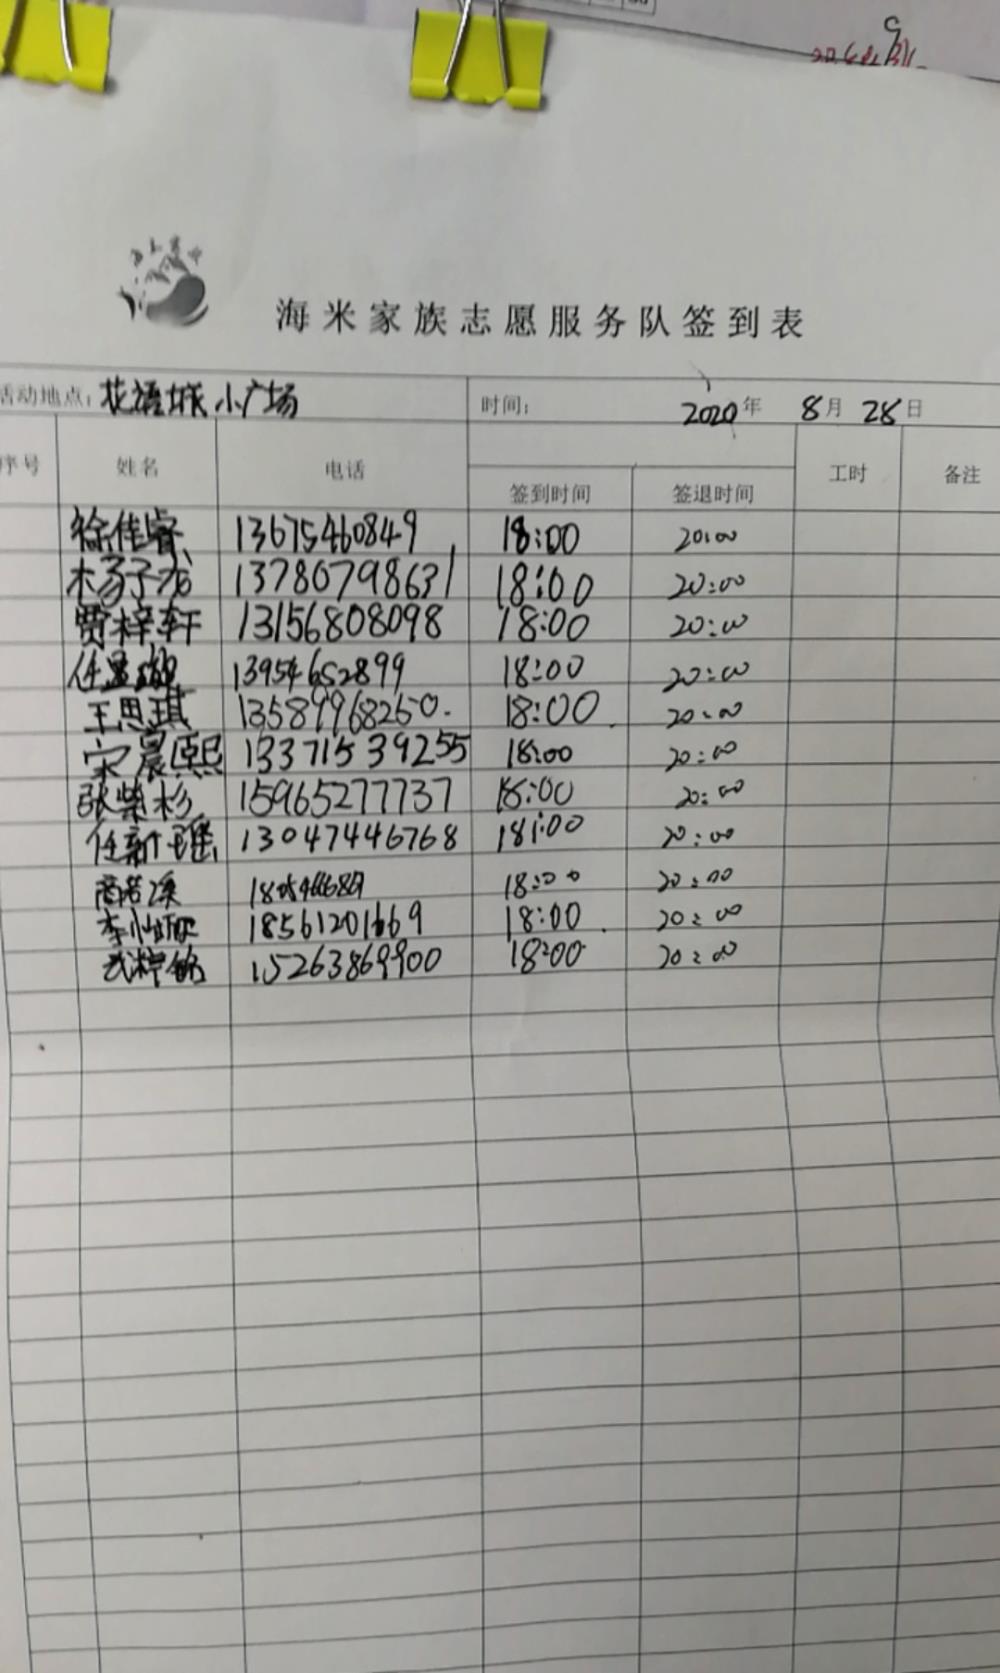 海米家族志愿服务队签到表
活动地点：花语城小广场 时间： 2020年 8月 28日
序号 姓名 电话 签到时间 签退时间 工时 备注
徐佳睿 13675460849 18:00 20:00
杨子龙 13780798631 18:00 20:00
贾梓轩 13156808098 18:00 20:00
任 13954652899 18:00 20:00
王思琪 13589968250. 18:00 20:00
宋晨熙 13371539255 18:00 20:00
张紫杉 15965277737 18:00 20:00
任新瑶 13047446768 18:00 20:00
商若溪 18:00 20:00
李怡 18561201669 18:00 20:00
武梓铭 15263869900 18:00 20:00